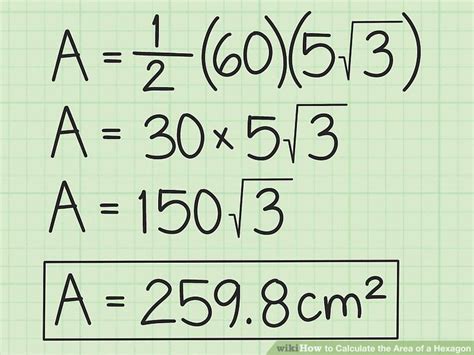 A = 1/2 (60)(5√3)
A = 30 × 5√3
A = 150√3
A = 259.8cm²
wikiHow to Calculate the Area of a Hexagon